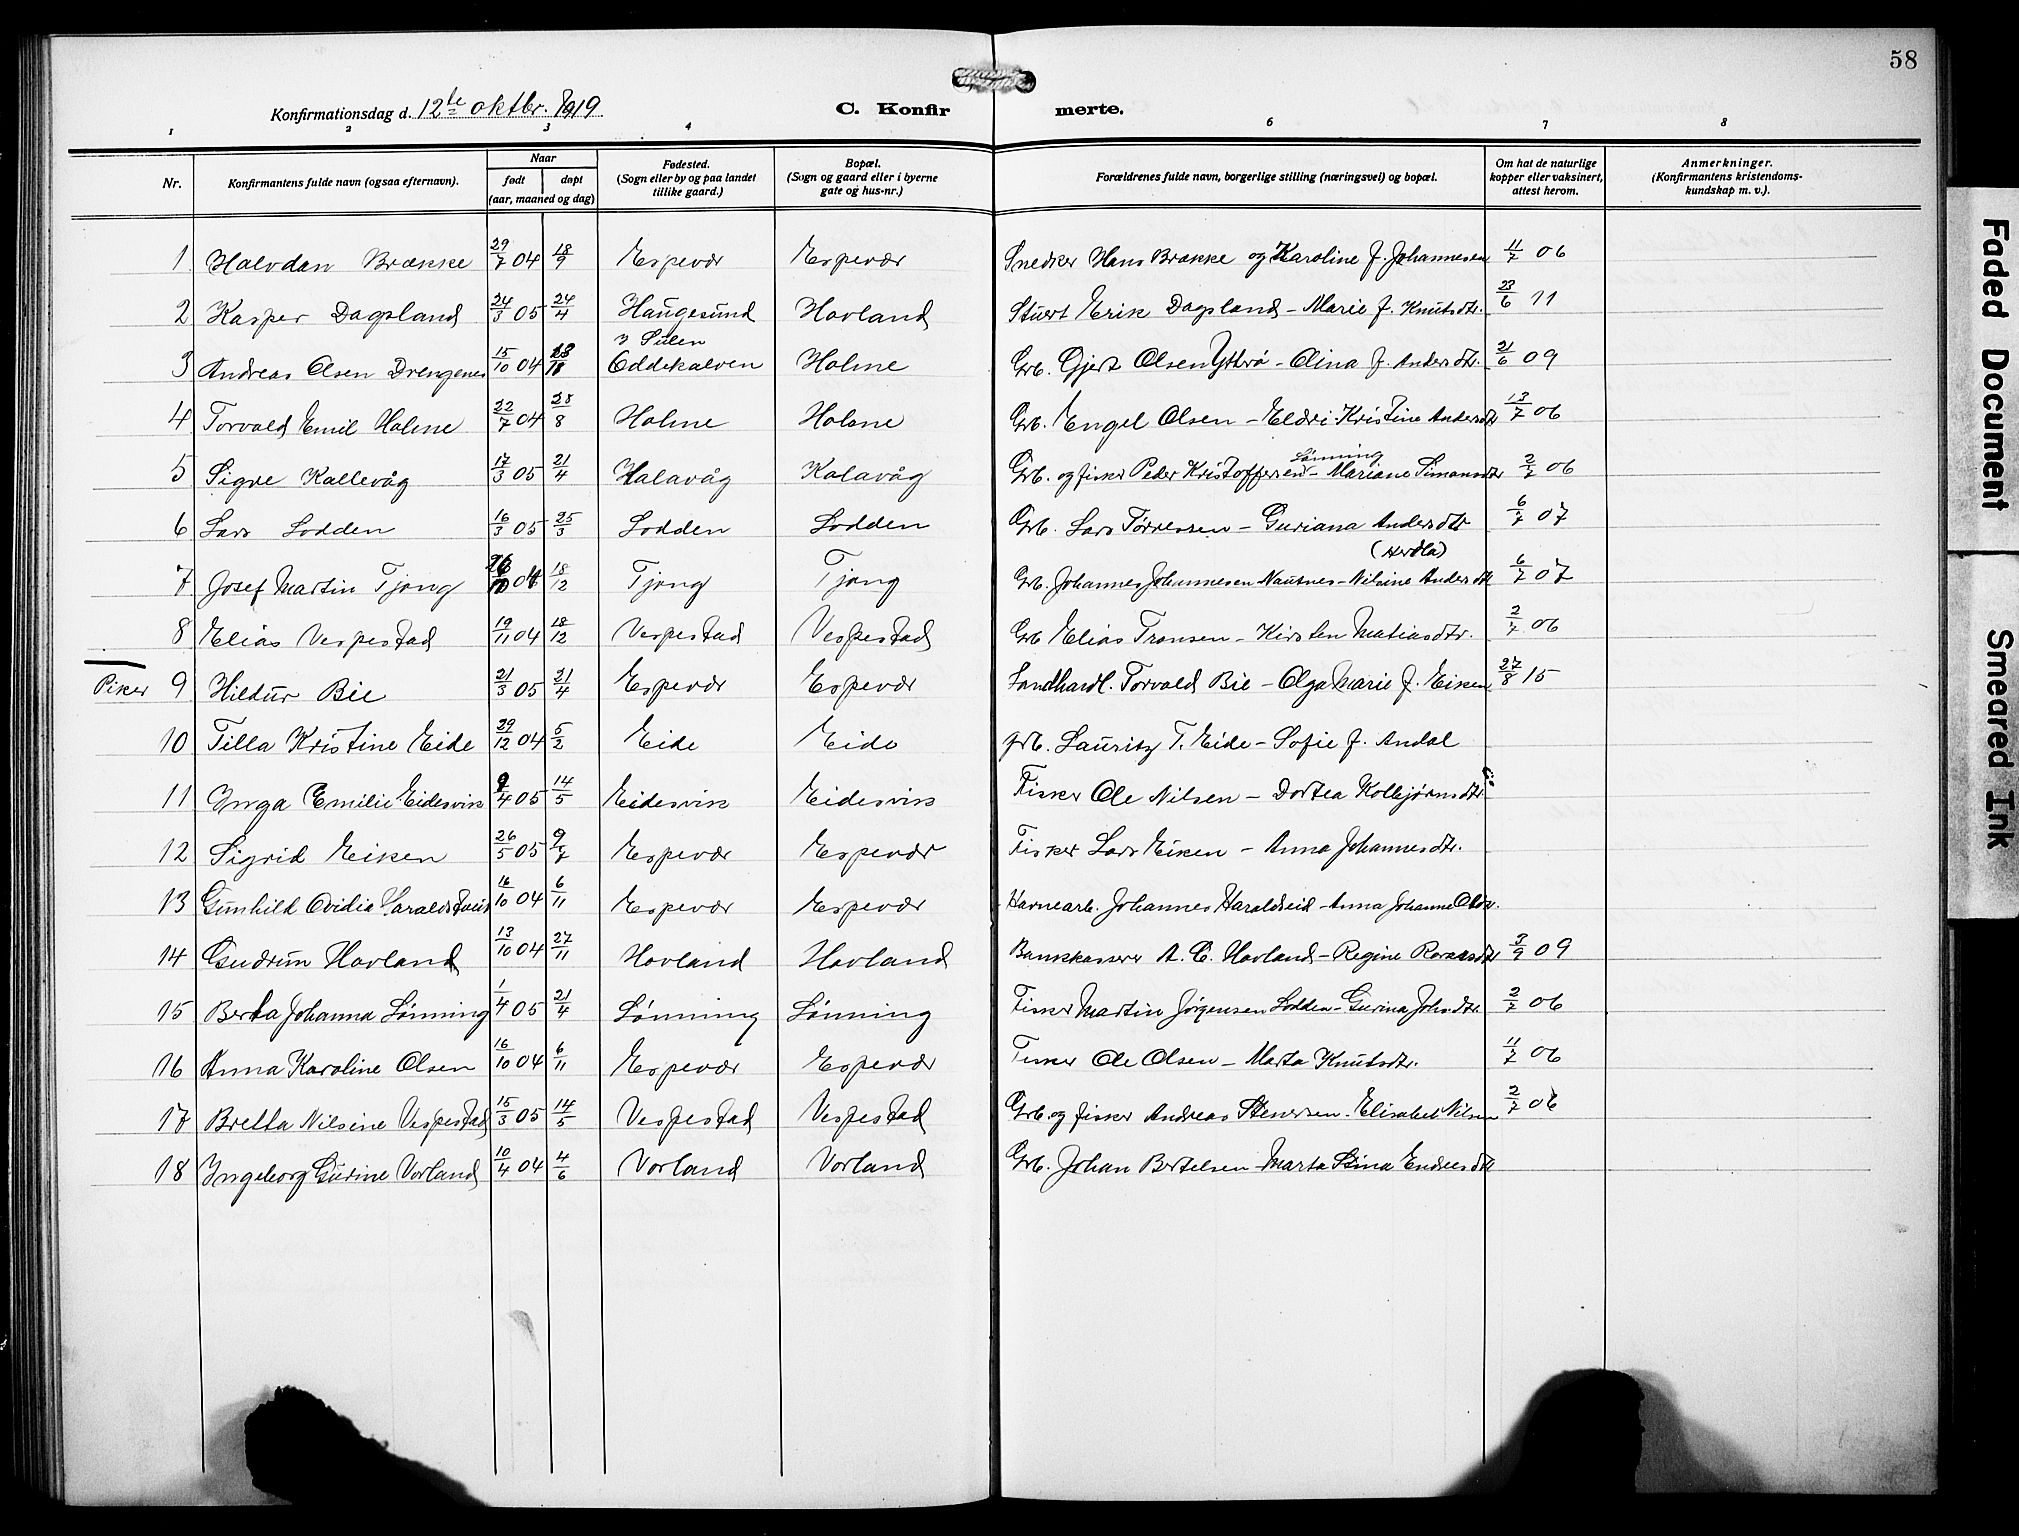 58
Konfirmationsdag d. 12te oktbr. 1919
C. Konfirmerte.
1 2 3 4 6 7 8
Nr. Konfirmantens fulde navn (ogsaa efternavn). Naar født døpt (aar, maaned og dag) Fødested. (Sogn eller by og paa landet tillike gaard.) Bopæl. (Sogn og gaard eller i byerne gate og hus-nr.) Forældrenes fulde navn, borgerlige stilling (næringsvei) og bopæl. Om hat de naturlige kopper eller vaksinert, attest herom. Anmerkninger. (Konfirmantens kristendoms-kundskap m. v.).
1 Halvdan Brække 29/7 04 18/9 Espevær Espevær Snedker Hans Brække og Karoline f. Johannesen 11/7 06
2 Kasper Dagsland 24/3 05 24/4 Haugesund Hovland Stuert Erik Dagsland - Marie f. Knutsdtr. 23/6 11
3 Andreas Olsen Drengenes 15/10 04 Oddekalven Holme Grb. Gjert Olsen Yttrø - Olina f. Andersdtr. 21/6 09
4 Torvald Emil Holme 22/7 04 28/8 Holme Holme Grb. Engel Olsen - Eldri Kristine Andersdtr 13/7 06
5 Sigve Kallevåg 17/3 05 21/4 Kalavåg Kalavåg Grb. og fisker Peder Kristoffersen Lønning - Mariane Simonsdtr 2/7 06
6 Lars Lodden 16/3 05 25/3 Lodden Lodden Grb. Lars Tørressen - Guriana Andersdtr 6/7 07
7 Josef Martin Tjong 04 18/12 Tjong Tjong Grb. Johannes Johannesen Nautnes - Nilsine Andersdtr (Herdla) 6/7 07
8 Elias Vespestad 19/11 04 18/12 Vespestad Vespestad Grb Elias Tronsen - Kirsten Matiasdtr. 2/7 06
Piker 9 Hildur Bie 21/3 05 21/4 Espevær Espevær Landhandl. Torvald Bie - Olga Marie f. Eiken 27/8 15
10 Tilla Kristine Eide 29/12 04 5/2 Eide Eide grb. Lauritz T. Eide - Sofie f. Andal
11 Inga Emilie Eidesvik 9/4 05 14/5 Eidesvik Eidesvik Fisker Ole Nilsen - Dortea Kolbjørnsdtr
12 Sigrid Eiken 26/5 05 9/7 Espevær Espevær Fisker Lars Eiken - Anna Johannesdtr.
13 Gunhild Ovidia Haraldseid 16/10 04 6/11 Espevær Espevær Havnearb. Johannes Haraldseid - Anna Johanne Olsdtr.
14 Gudrun Hovland 13/10 04 27/11 Hovland Hovland Bankkasserer A. C. Hovland - Regine 3/9 09
15 Berta Johanna Lønning 1/4 05 21/4 Lønning Lønning Fisker Martin Jørgensen Lodden - Gurina Johsdtr. 2/7 06
16 Anna Karoline Olsen 16/10 04 6/11 Espevær Espevær Fisker Ole Olsen - Marta Knutsdtr. 11/7 06
17 Bretta Nilsine Vespestad 15/3 05 14/5 Vespestad Vespestad Grb. og fisker Andreas Stenersen - Elisabet Nilsen 2/7 06
18 Ingeborg Gurine Vorland 10/4 04 4/6 Vorland Vorland Grb. Johan Bertelsen - Marta Stina Endresdtr
Faded Document
Smeared Ink